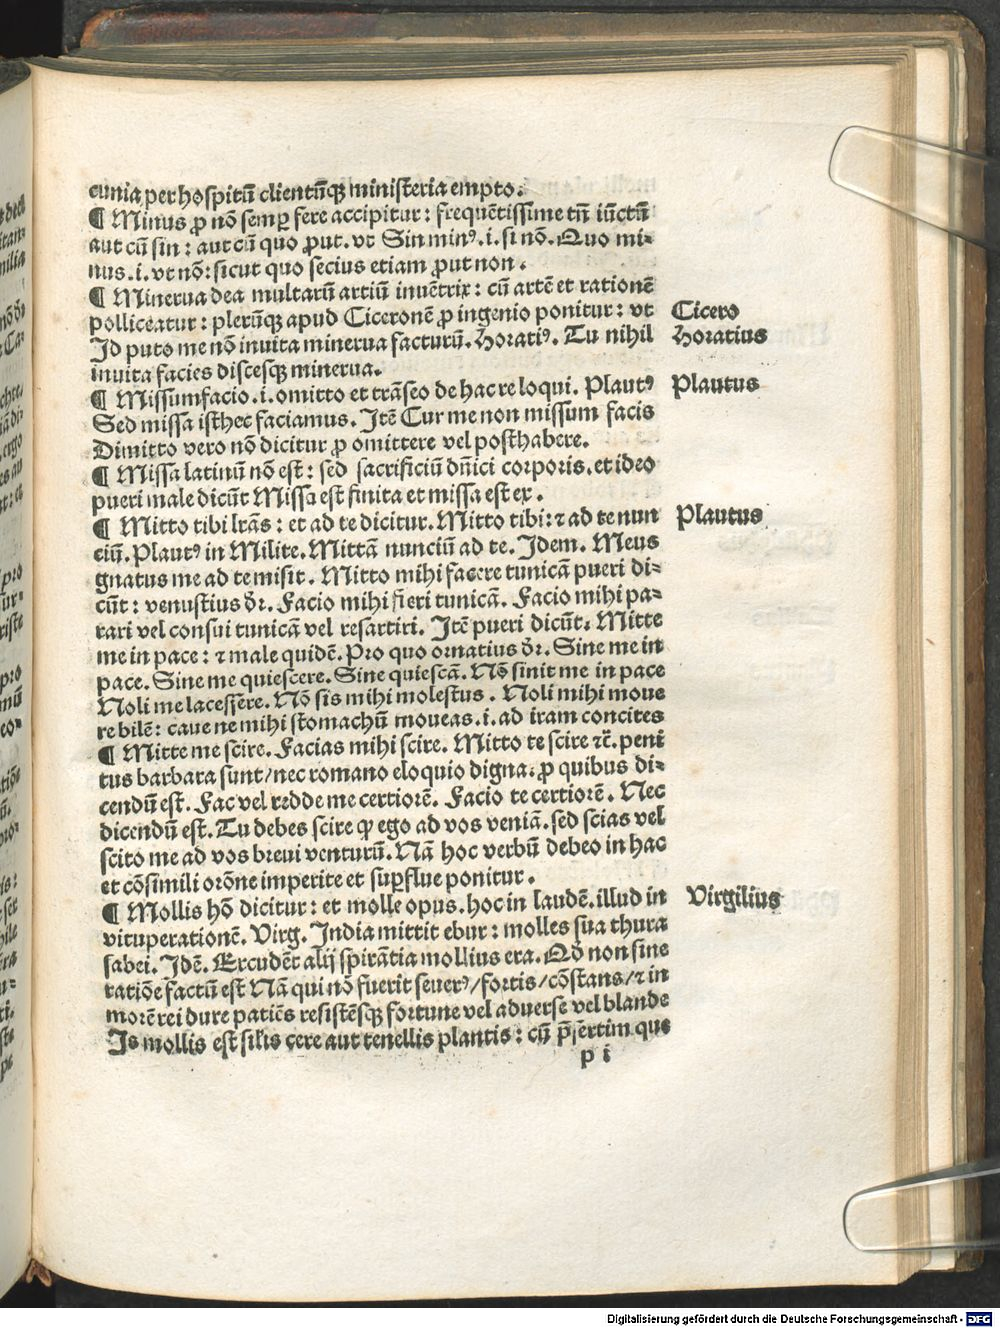 cunia per hospitū clientūqꝫ ministeria empto.
¶ Minus ꝓ nō semꝑ fere accipitur: frequētissime tn̄ iūctū
aut cū sin: aut cū quo ꝓut. vt Sin minꝰ .i. si nō. Quo mi⸗
nus .i. vt nō: sicut quo secius etiam ꝓut non.
¶ Minerua dea multarū artiū inuētrix: cū artē et rationē
polliceatur: plerūqꝫ apud Ciceronē ꝓ ingenio ponitur: vt
Id puto me nō inuita minerua facturū. Horatiꝰ. Tu nihil
inuita facies discesqꝫ minerua.
¶ Missumfacio .i. omitto et trāseo de hac re loqui. Plautꝰ
Sed missa isthec faciamus. Itē Cur me non missum facis
Dimitto vero nō dicitur ꝓ omittere vel posthabere.
¶ Missa latinū nō est: sed sacrificiū dn̄ici corporis. et ideo
pueri male dicūt Missa est finita et missa est ex.
¶ Mitto tibi lr̄as: et ad te dicitur. Mitto tibi: ⁊ ad te nun
ciū. Plautꝰ in Milite. Mittā nunciū ad te. Idem. Meus
gnatus me ad te misit. Mitto mihi facere tunicā pueri di⸗
cūt: venustius dr̄. Facio mihi fieri tunicā. Facio mihi pa⸗
rari vel consui tunicā vel resartiri. Itē pueri dicūt. Mitte
me in pace: ⁊ male quidē. Pro quo ornatius dr̄. Sine me in
pace. Sine me quiescere. Sine quiescā. Nō sinit me in pace
Noli me lacessere. Nō sis mihi molestus. Noli mihi moue
re bilē: caue ne mihi stomachū moueas .i. ad iram concites
¶ Mitte me scire. Facias mihi scire. Mitto te scire ⁊c̄. peni
tus barbara sunt/nec romano eloquio digna: ꝓ quibus di⸗
cendū est. Fac vel redde me certiorē. Facio te certiorē. Nec
dicendū est. Tu debes scire ꝙ ego ad vos veniā. sed scias vel
scito me ad vos breui venturū. Nā hoc verbū debeo in hac
et cōsimili orōne imperite et suꝑflue ponitur.
¶ Mollis hō dicitur: et molle opus. hoc in laudē. illud in
vituperationē. Virg. India mittit ebur: molles sua thura
sabei. Idē. Excudēt alij spirātia mollius era. Qd̄ non sine
ratiōe factū est Nā qui nō fuerit seuerꝰ/fortis/cōstans/⁊ in
morē rei dure patiēs resistēsqꝫ fortune vel aduerse vel blande
Is mollis est sil̄is cere aut tenellis plantis: cū p̄sertim que
p i
Cicero
Horatius
Plautus
Plautus
Virgilius
Digitalisierung gefördert durch die Deutsche Forschungsgemeinschaft - DFG